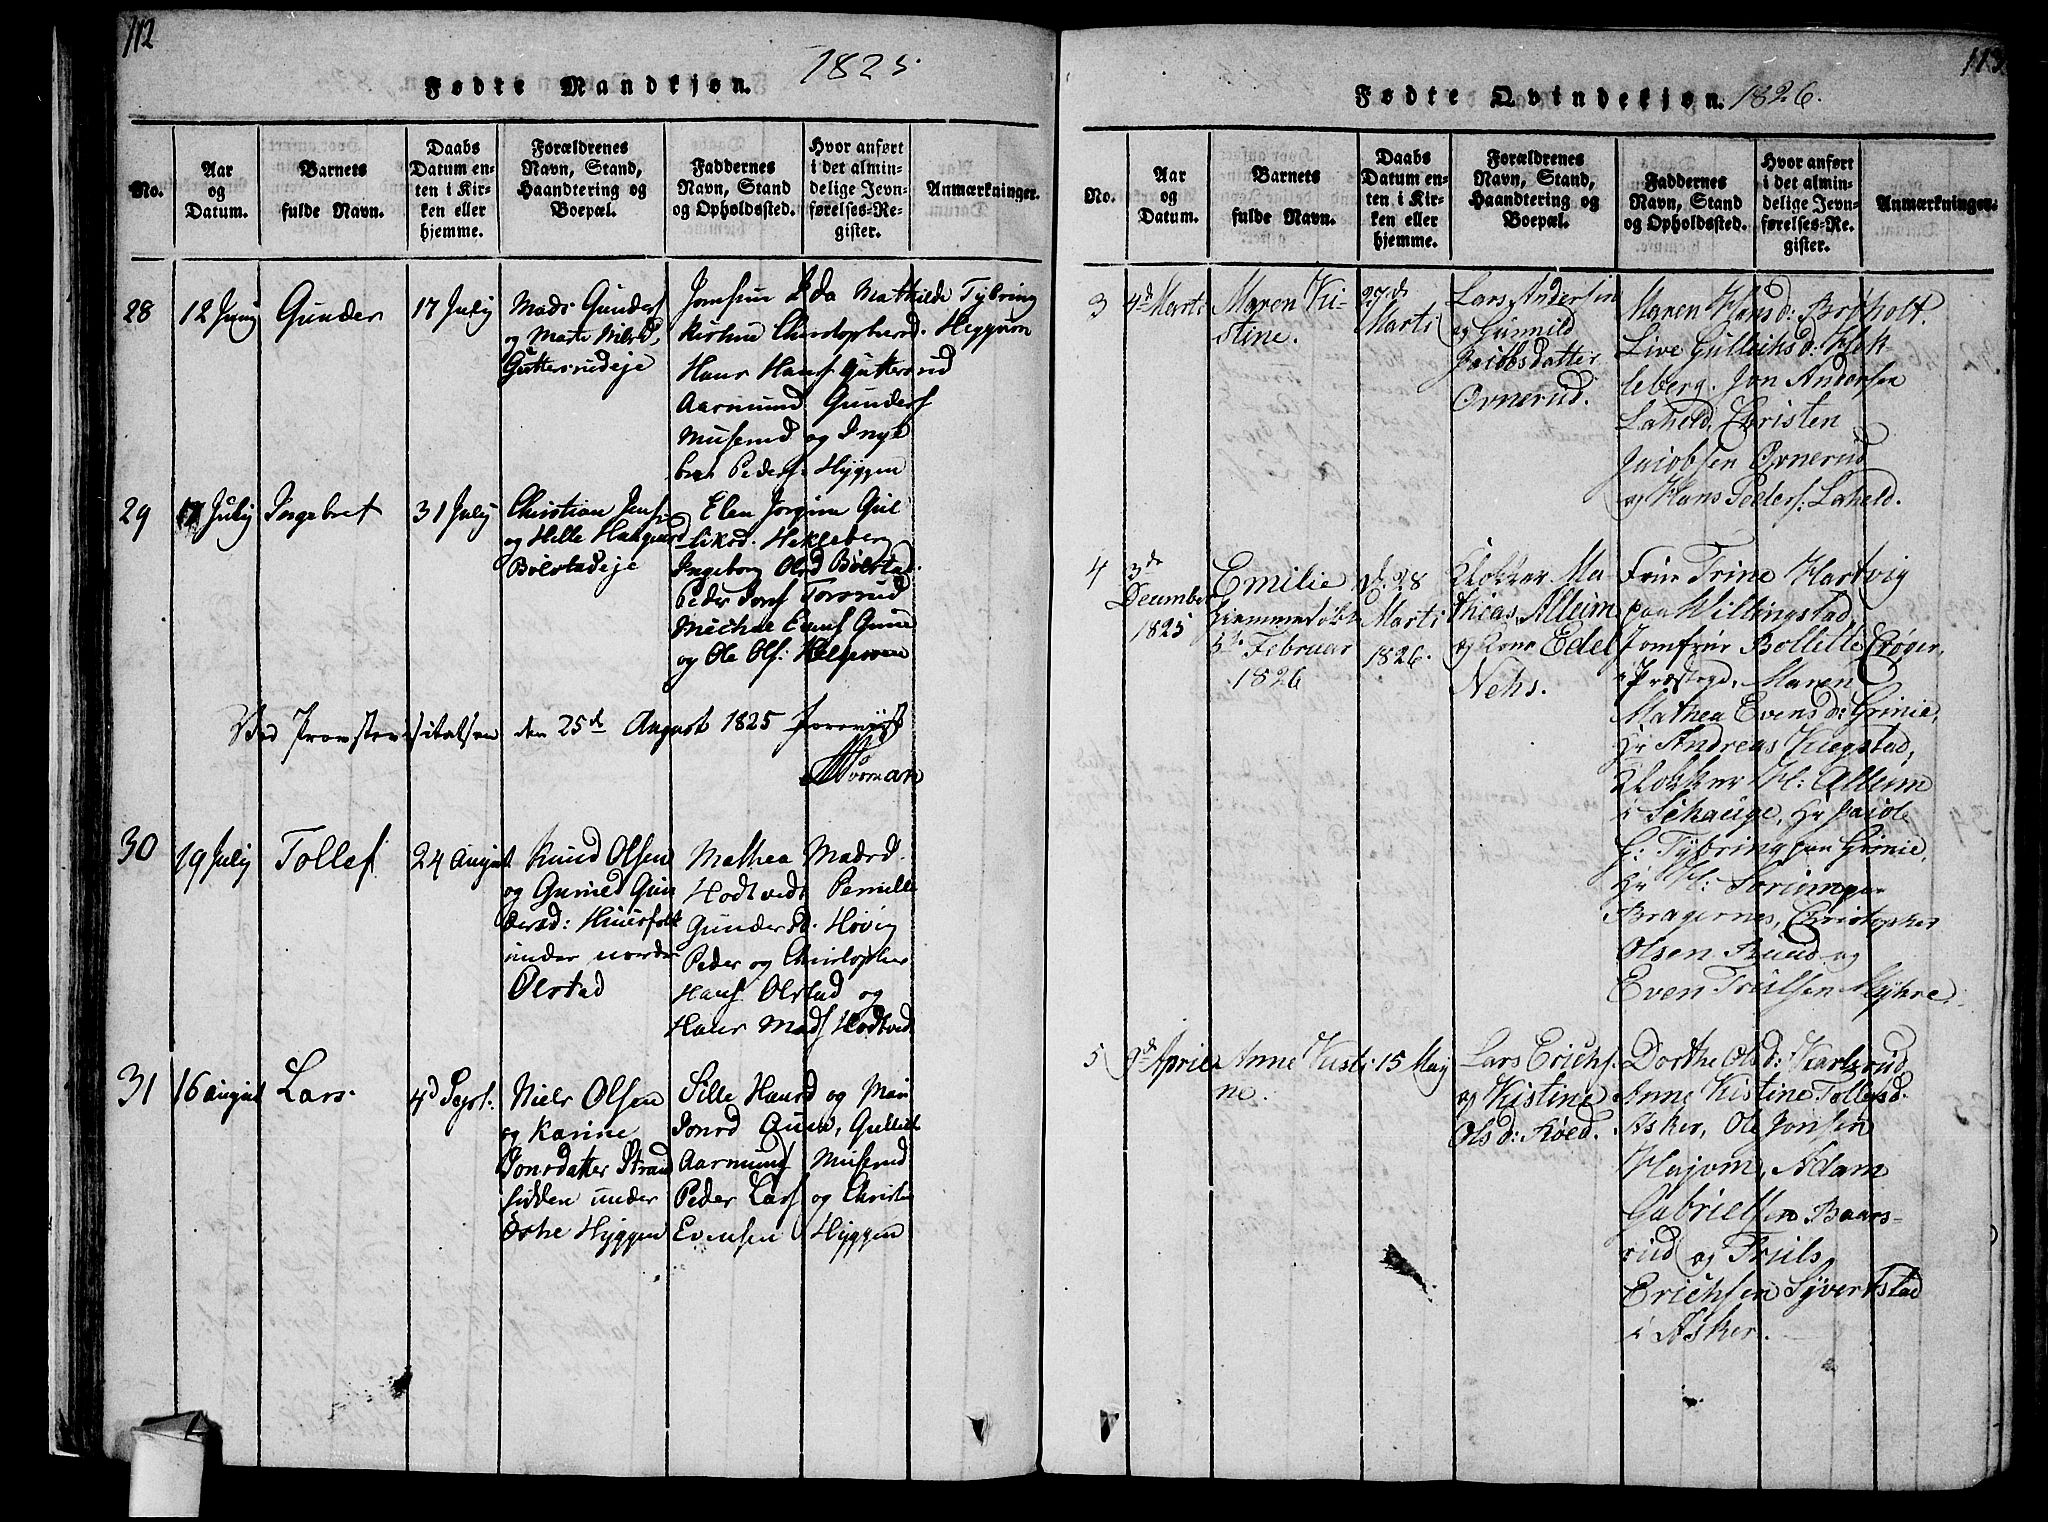 112
Fødte Mandkjøn. 1825.
No.
Aar og Datum.
Barnets fulde Navn.
Daabs Datum enten i Kirken eller hjemme.
Forældrenes Navn, Stand, Haandtering og Boepæl.
Faddernes Navn, Stand og Opholdssted.
Hvor anført i det almindelige Jevnførelses-Register.
Anmærkninger.
28
12 Juny
Gunder
17 July
Mads Gunders
og Marte Nielsd.
Guttersrudeje
Jomfrue Ida Mathilde Tybring
Kirstine Christophersd. Heggum
Hans Hans Guttersrud
Aasmund Gunders
Muserud og Inge
bret Peders. Hyggen
29
17 July
Ingebret
31 July
Christian Jens
og Helle Haagensd
Bölstadeje
Elen Jorgine Gul
liksd. Hekleberg
Ingeborg Olsd Bölstad.
Peder Jons Torsrud
Michael Evens Gune
og Ole Ols:
Ved Provstevisitatsen den 25de August 1825 forevist
30
19 July
Tollef
24 August
Knud Olsen
og Guned Gun
dersd: Huusfolk
under nordre
Ölstad
Mathea Madsd.
Hodtvedt Pernille
Gundersd. Hövig
Peder og Christopher
Hans. Ölstad og
Hans Mads Hodtvedt
31
16 August
Lars.
4d Sept:
Niels Olsen
og Karine
Jonsdatter Strand
under
Östre Hyggen
Sille Hansd og Mari
Jonsd Gune, Gullich
Aasmunds Muserud
Peder Lars og Christen
Evensen Hyggen
113
Fødte Qvindekjøn. 1826.
No.
Aar og Datum.
Barnets fulde Navn.
Daabs Datum enten i Kirken eller hjemme.
Forældrenes Navn, Stand, Haandtering og Boepæl.
Faddernes Navn, Stand og Opholdssted.
Hvor anført i det almindelige Jevnførelses-Register.
Anmærkninger.
3
4d Marts
Maren Ki-
stine.
27d
Marts
Lars Andersen
og Gunnild
Jacobsdatter
Ovnerud.
Maren Hansd: Bröholt.
Live Gulliksd: Hek-
leberg. Jon Andersen
Laheld, Christen
Jacobsen Ovnerud
og Hans Peders: Laheld.
4
3de
December
1825
Emilie
hjemmedöbt
5te Februar
1826
d. 28
Marts
1826.
Klokker Ma-
thias Alleum
og Kone Edel
Nehs.
Frue Trine Hartvig
paa Willingstad,
Jomfrue Bollette Cröger,
i Præstegd, Maren
Mathea Evensd: Grinie,
Hr Andreas Kiegstad,
Klokker H: Alleum
i Schauge, Hr Jacob
H: Tybring paa Grinie,
Hr H: Soriem paa
Bragernes, Christopher
Olsen Ruud og
Even Trulsen Myhre.
5
9d April
Anne Kisti
ne.
15 May
Lars Erichs.
og Kistine
Olsd: Röed.
Dorthe Olsd: Karlsrud
Anne Kistine Tollefsd.
Asker, Ole Jonsen
Hajum, Adam
Gabrielsen Baars-
rud og Truls
Erichsen Syvertstad
i Asker.